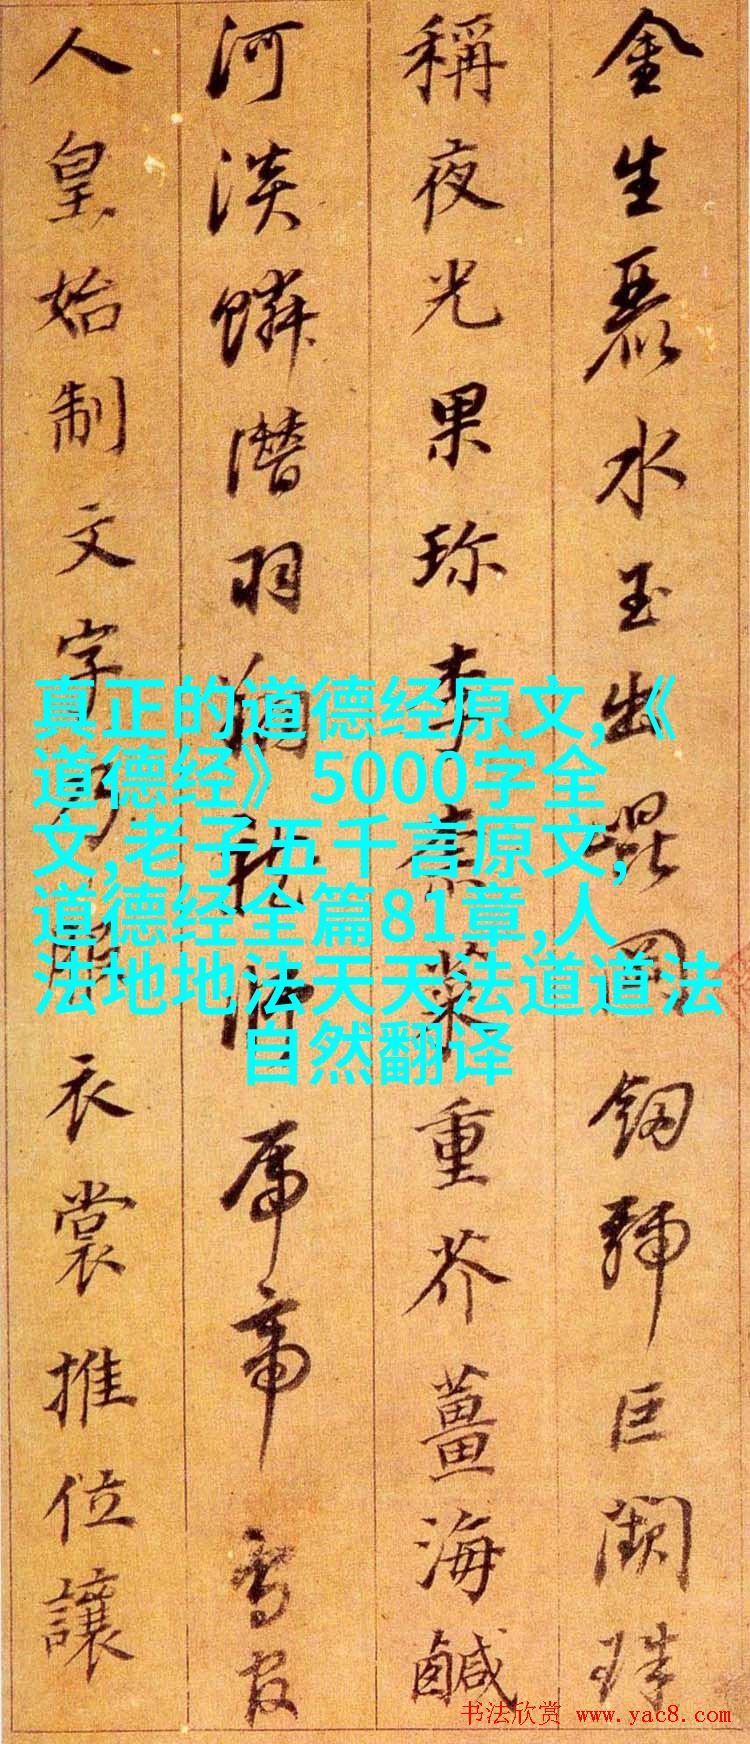 金生麗水玉出崐岡釼號巨闕珠
稱夜光果珍李柰菜重芥薑海鹹
河淡鱗潛羽翔龍師火帝鳥官
人皇始制文字乃服衣裳推位讓
真正的道德经原文,《
道德经》5000字全
文,老子五千言原文,
道德经全篇81章,人
法地地法天天法道道法
自然翻译
书法欣赏 www.yac8.com